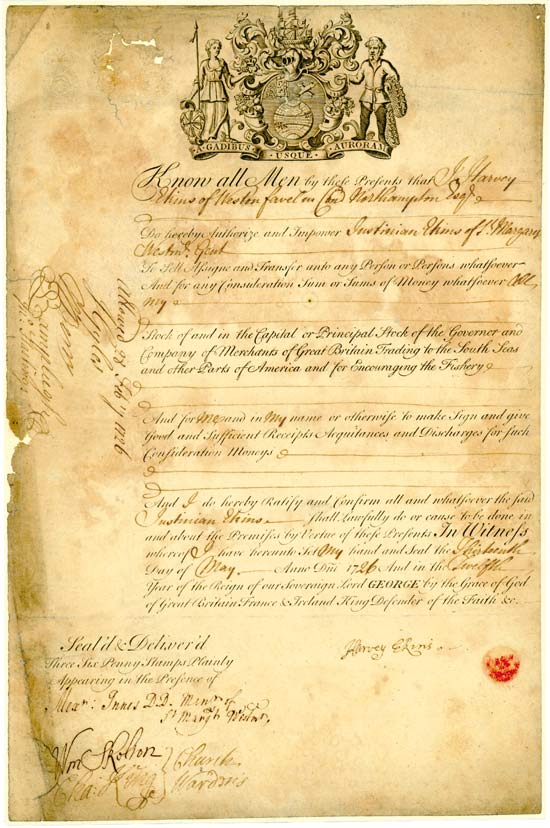 A GADIBUS USQUE AURORAM
Know all Men by these Presents that I Harvey
Ekins of Weston favel in Com Northampton Esqr
Do hereby Authorize and Impower Justinian Ekins of St Margarets
Westmr Gent
To Sell Assigne and Transfer unto any Person or Persons whatsoever
And for any Consideration Sum or Sums of Money whatsoever All
my
Stock of and in the Capital or Principal Stock of the Governor and
Company of Merchants of Great Britain Trading to the South Seas
and other Parts of America and for Encouraging the Fishery
And for Me and in My name or otherwise to make Sign and give
Good and Sufficient Receipts Acquitances and Discharges for such
Consideration Moneys
And I do hereby Ratify and Confirm all and whatsoever the said
Justinian Ekins shall Lawfully do or cause to be done in
and about the Premisses by Vertue of these Presents In Witness
whereof I have hereunto Set My hand and Seal the Sixteenth
Day of May Anno Dni 1726 And in the Twelfth
Year of the Reign of our Sovereign Lord GEORGE by the Grace of God
of Great Britain France & Ireland King Defender of the Faith &c.
Seal'd & Deliver'd
Three Six Penny Stamps Plainly
Appearing in the Presence of
Harvey Ekins
Alexr: Innes D.D. Minr of
St Margts Westmr
Wm Skelton
Cha: King
Church
Wardens
1726